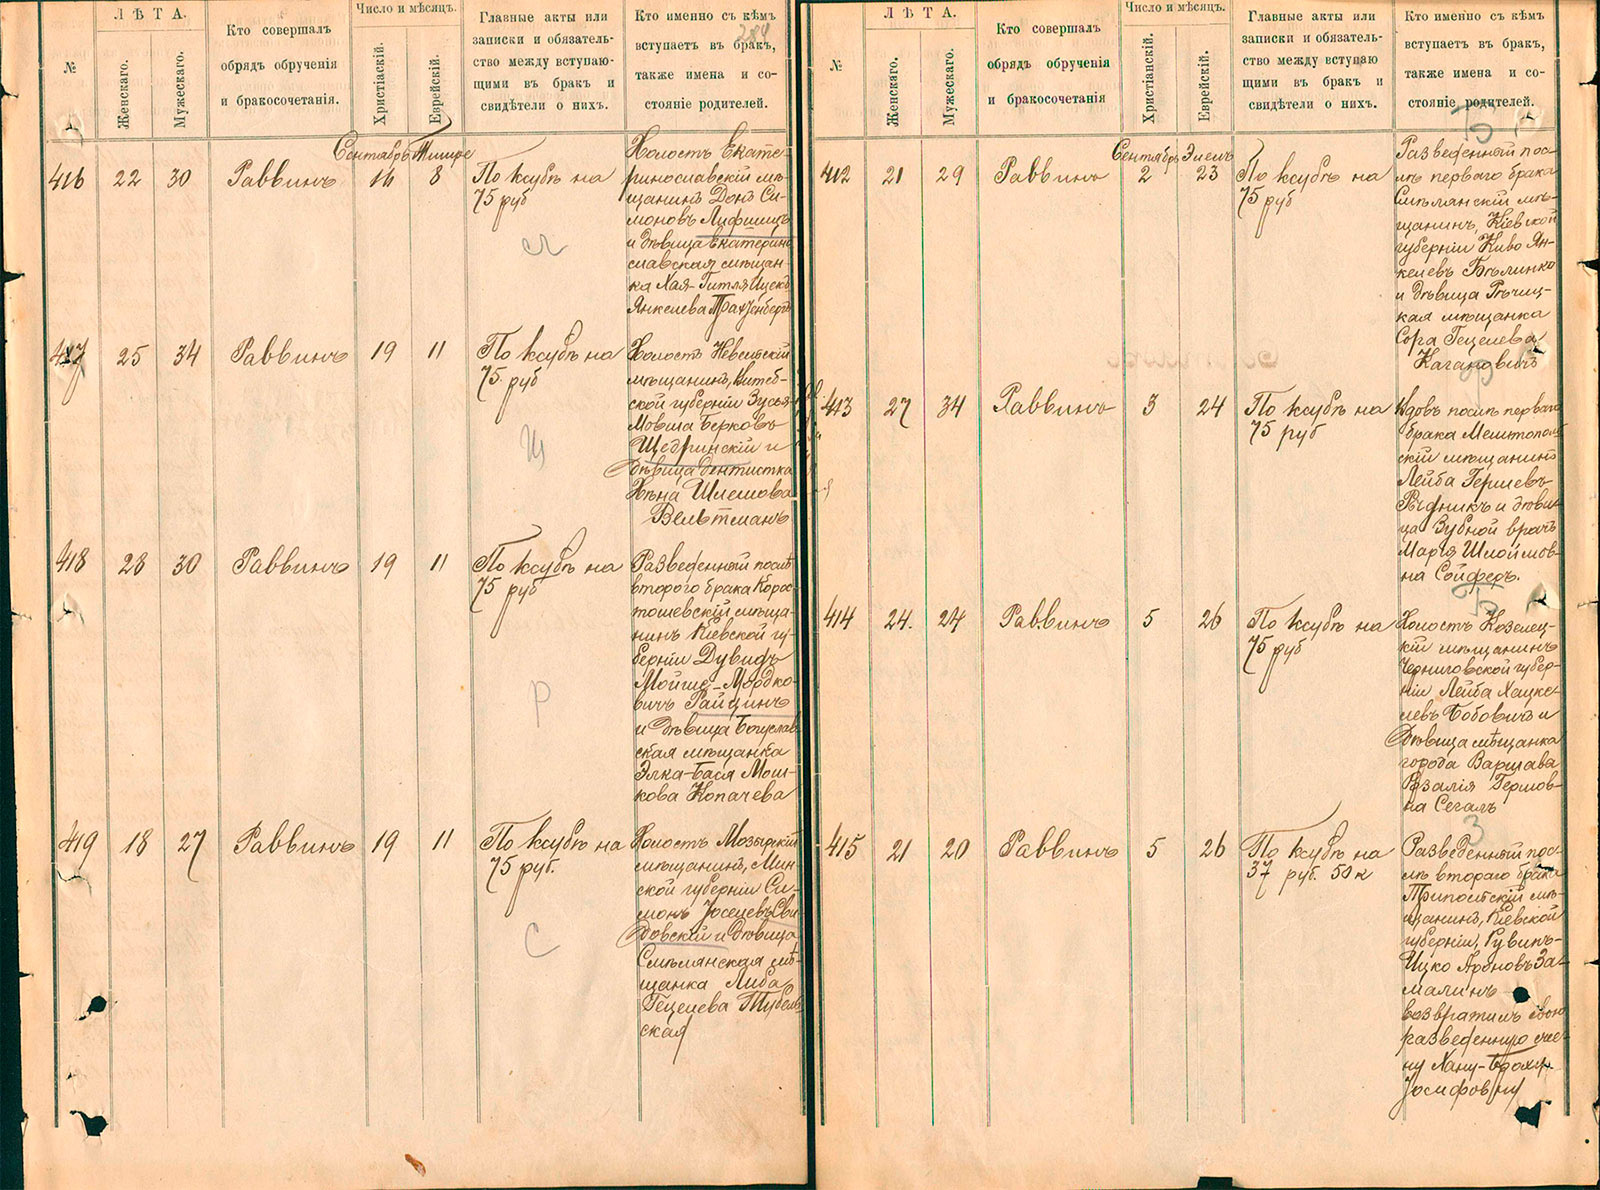 ЛѢТА.
Число и мѣсяцъ.
№
Женскаго.
Мужескаго.
Кто совершалъ
обрядъ обрученія
и бракосочетанія.
Христіаскій.
Еврейскій.
Главные акты или
записки и обязатель-
ство между вступаю-
щими въ бракъ и
свидѣтели о нихъ.
Кто именно съ кѣмъ
вступаетъ въ бракъ,
также имена и со-
стояніе родителей.
284
Сентябрь Тишре
416 22 30 Раввинъ 16 8
По ксубѣ на
75 руб
Холостъ Екате-
ринославскій мѣ-
щанинъ Донъ Си-
моновъ Лифшицъ
и дѣвица Екатерино
славская мѣщан-
ка Хая-Гитля Ицско
Янкелева Трахтенбергъ
417 25 34 Раввинъ 19 11
По ксубѣ на
75 руб
Щ
Холостъ Невельскій
мѣщанинъ, Витеб-
ской губерніи Зусья-
Мовша Берковъ
Щедринскій и
дѣвица дантистка
Хѣна Шлемова
Вельтманъ
418 28 30 Раввинъ 19 11
По ксубѣ на
75 руб
Р
Разведенный послѣ
второго брака Корос-
тошевскій мѣща-
нинъ Кіевской гу-
берніи Дувидъ
Мойше-Мордко-
вичъ Райцинъ
и дѣвица Богуслав
ская мѣщанка
Элка-Бася Мош-
кова Копачева
419 18 27 Раввинъ 19 11
По ксубѣ на
75 руб.
С
Холостъ Мозырскій
мѣщанинъ, Мин-
ской губерніи Си-
монъ Іоселевъ Сви-
довскій и дѣвица
Смѣлянская мѣ-
щанка Либа
Гецелева Тубель
ская
ЛѢТА.
Число и мѣсяцъ.
№
Женскаго.
Мужескаго.
Кто совершалъ
обрядъ обрученія
и бракосочетанія
Христіанскій.
Еврейскій.
Главные акты или
записки и обязатель-
ство между вступаю
щими въ бракъ и
свидѣтели о нихъ.
Кто именно съ кѣмъ
вступаетъ въ бракъ,
также имена и со-
стояніе родителей.
Сентябрь Элелъ
412 21 29 Раввинъ 2 23
По ксубѣ на
75 руб
Разведенный пос-
лѣ перваго брака
Смѣлянскій мѣ-
щанинъ, Кіевской
губерніи Кива Ян-
келевъ Бѣлинко
и дѣвица Рѣчиц-
кая мѣщанка
Сора Гецелева
Кагановичъ
413 27 34 Раввинъ 3 24
По ксубѣ на
75 руб
Вдовъ послѣ перваго
брака Мелитополь
скій мѣщанинъ
Лейба Гершевъ
Рѣзникъ и дѣви-
ца Зубной врачъ
Марія Шлоймов-
на Сойферъ.
414 24. 24 Раввинъ 5 26
По ксубѣ на
75 руб
Холостъ Козелец-
кій мѣщанинъ
Черниговской губер-
ніи Лейба Хацке-
левъ Бобовичъ и
дѣвица мѣщанка
города Варшава
Розалія Гершов-
на Сегалъ
З
415 21 20 Раввинъ 5 26
По ксубѣ на
37 руб. 50 к
Разведенный пос-
лѣ втораго брака
Трипольскій мѣ-
щанинъ, Кіевской
губерніи, Рувинъ-
Ицко Ароновъ За-
малинъ
возвратилъ свою
разведенную же-
ну Хану-Броху
Іосифовну